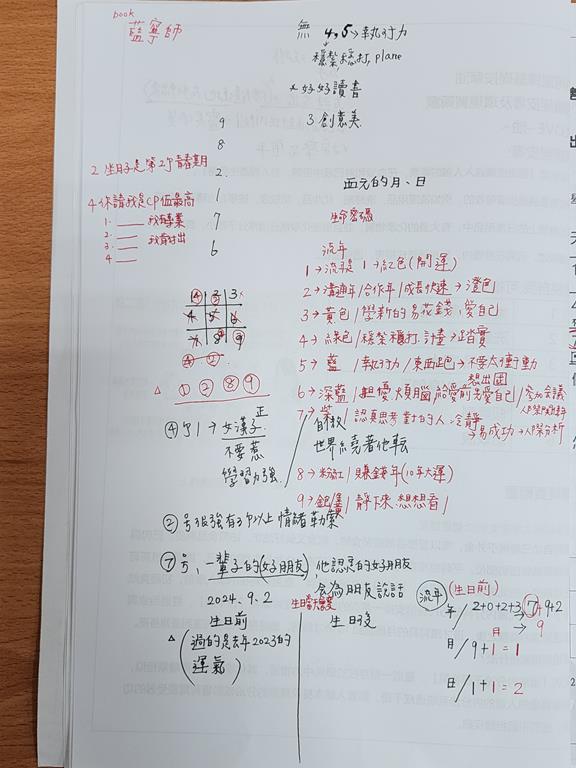 book
藍寧師
無 4,5→執行力
穩紮穩打, plane
*好好讀書
3 創意美
9
8
2
1
7
6
2 坐月子是第2個青春期
4 保證我是CP值最高
1. 我有專業
2.
3. 我有付出
4
西元的月、日
生命密碼
流年
1→流年是1→紅色(開運)
2→溝通年/合作年/成長快速→澄色
3→黃色/學新的易花錢,愛自己
4→綠色/穩紮穩打 計畫→踏實
5→藍/執行力/東西走跑→不要太衝動
想出國
6→深藍/担憂 煩腦 給愛前先愛自己/參加會議
7→紫/認真思考 對的人 冷靜
→易成功→人際分析
8→粉紅/賺錢年(10年大運)
9→銀/靜下來想想看/
4 3 3
4 5 6
7 8 9
④ ②
△ ① ② ⑧ ⑨
④個1→女漢子 正
不要惹
學習力強
自我
世界繞著他転
②号很強有3個以上情緒勒索
⑦号,一輩子的(好朋友),他認定的好朋友
會為朋友說話
2024.9.2
生日前
生日當天
生日後
△(過的是去年2023的
運氣)
流年 (生日前)
年/2+0+2+3→7+9+2
月→9
月/9+1=1
日/1+1=2